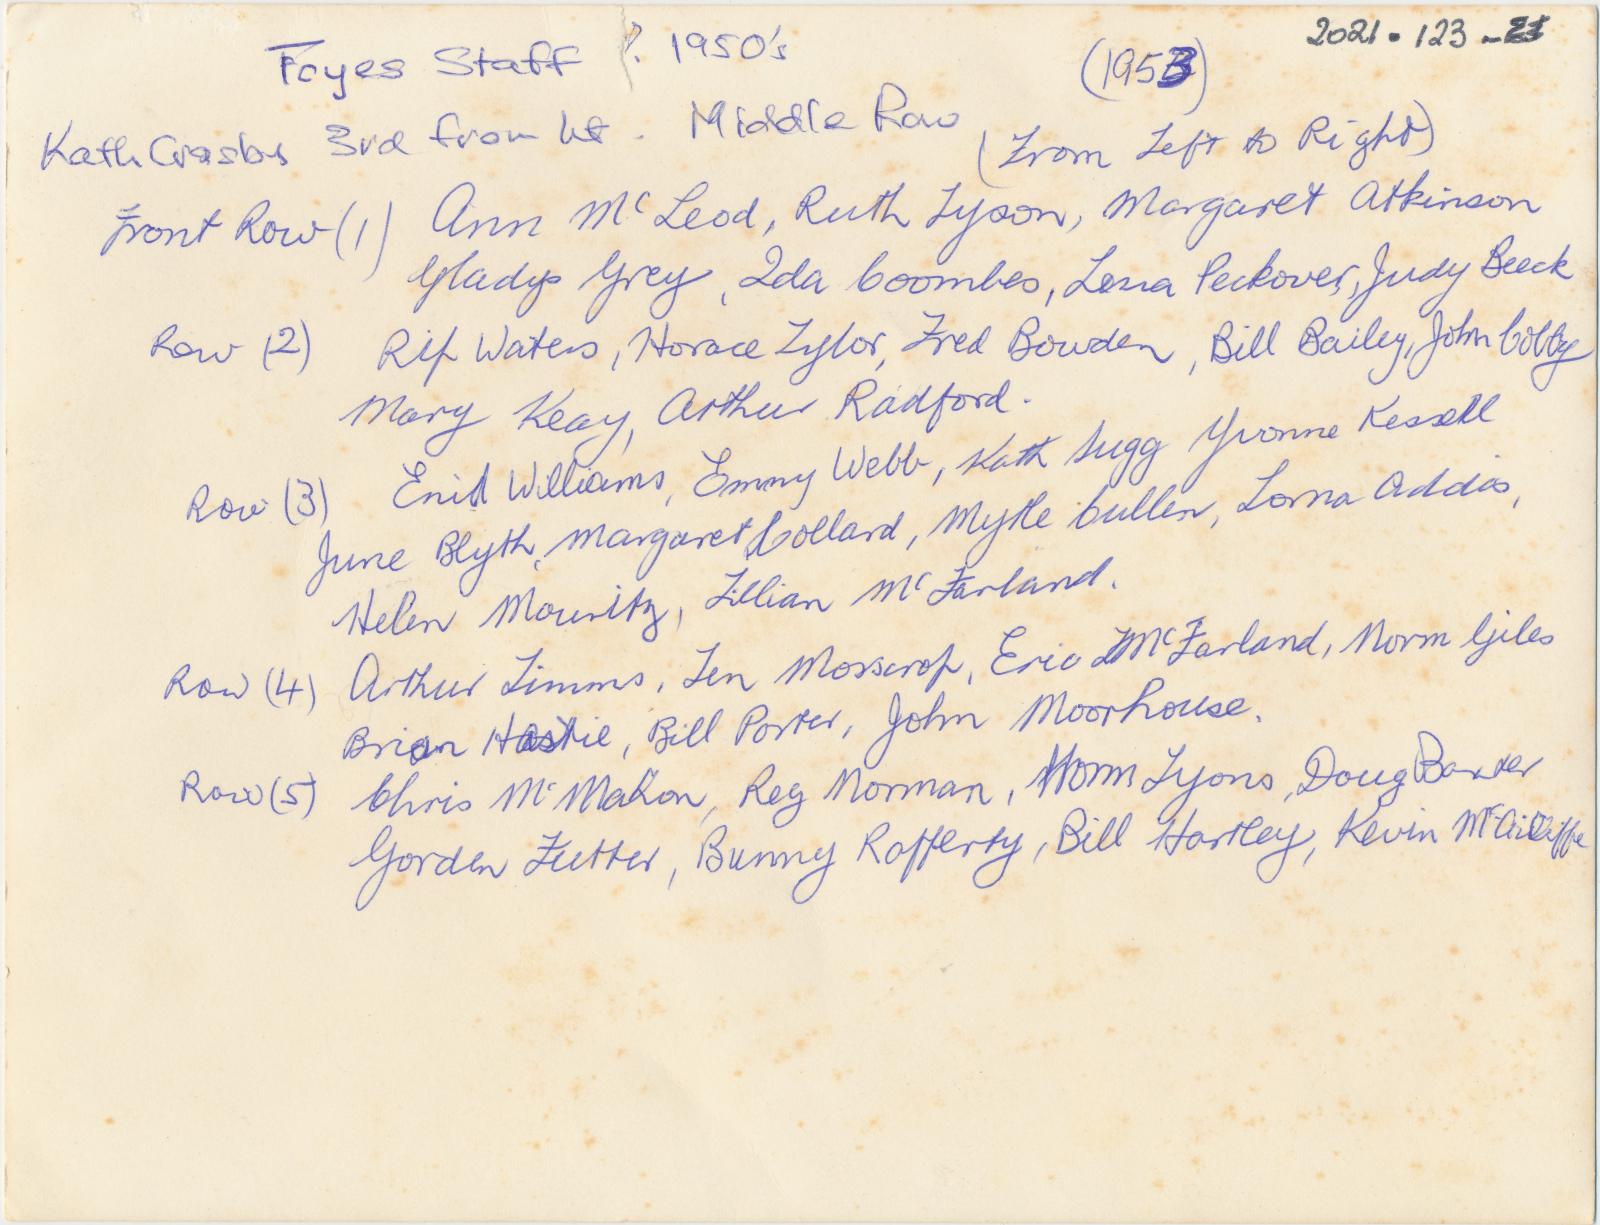 2021.123-
Foyes Staff ? 1950's (1953)
Kath Crosby 3rd from lft. Middle Row
(From Left to Right)
Front Row (1) Ann McLeod, Ruth Tyson, Margaret Atkinson
Gladys Grey, Ida Coombes, Lena Peckover, Judy Beeck
Row (2) Rip Waters, Horace Tylor, Fred Bowden, Bill Bailey, John Cobby
Mary Keay, Arthur Radford.
Row (3) Enid Williams, Emmy Webb, Kath Sugg Yvonne Kessell
June Blyth, Margaret Collard, Mytle Cullen, Lorna Addis,
Helen Mouritz, Lillian McFarland.
Row (4) Arthur Timms, Len Moscrop, Eric McFarland, Norm Giles
Brian Hastie, Bill Porter, John Moorhouse.
Row (5) Chris McMahon, Reg Norman, Norm Lyons, Doug Baxter
Gorden Futter, Bunny Rafferty, Bill Hartley, Kevin McAuliffe